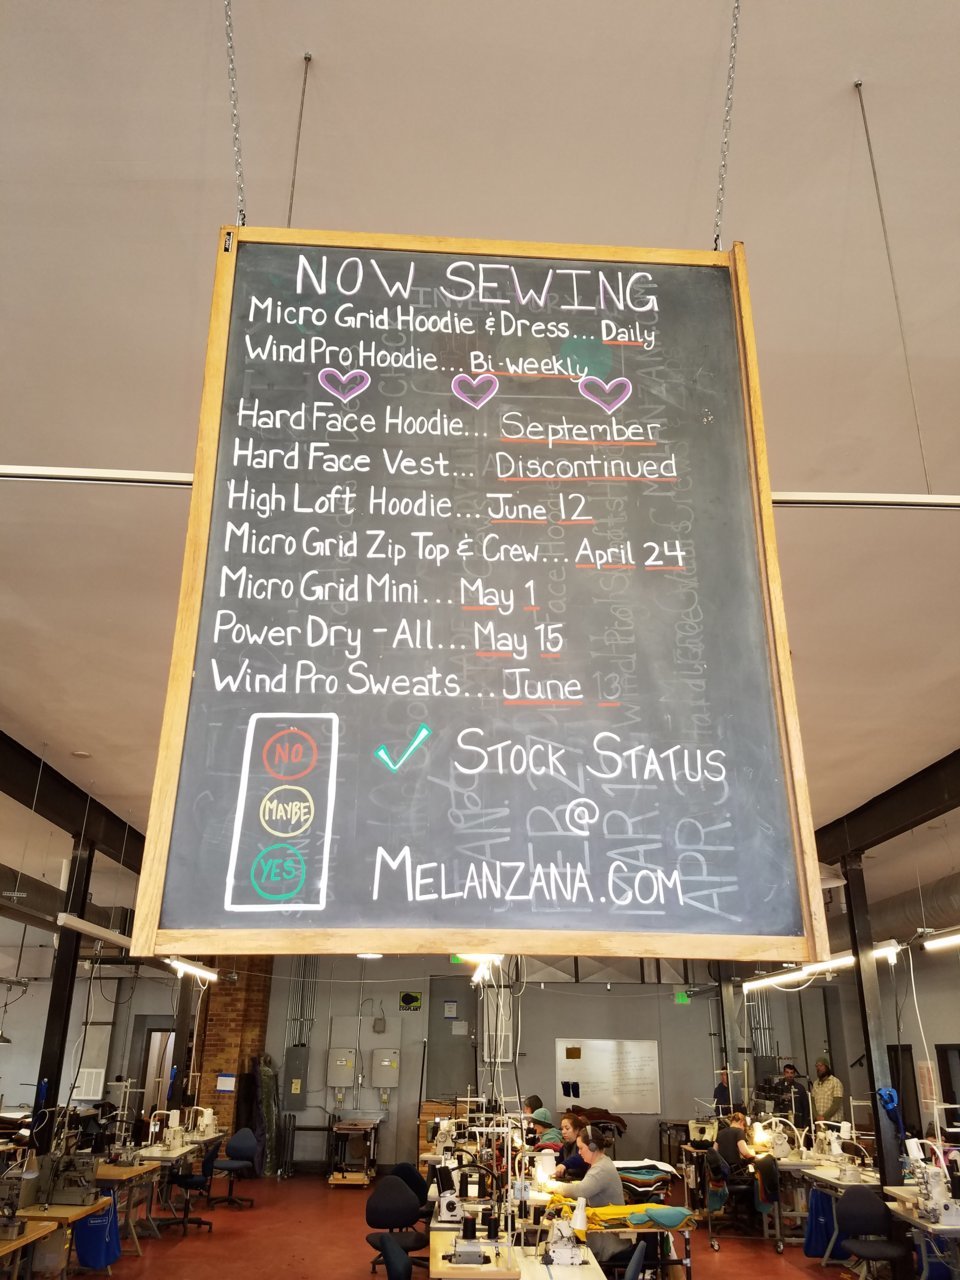 NOW SEWING
Micro Grid Hoodie & Dress... Daily
Wind Pro Hoodie... Bi-weekly
Hard Face Hoodie... September
Hard Face Vest... Discontinued
High Loft Hoodie... June 12
Micro Grid Zip Top & Crew... April 24
Micro Grid Mini... May 1
Power Dry - All... May 15
Wind Pro Sweats... June 13
NO
MAYBE
YES
✓ STOCK STATUS
@
MELANZANA.COM
EGGPLANT